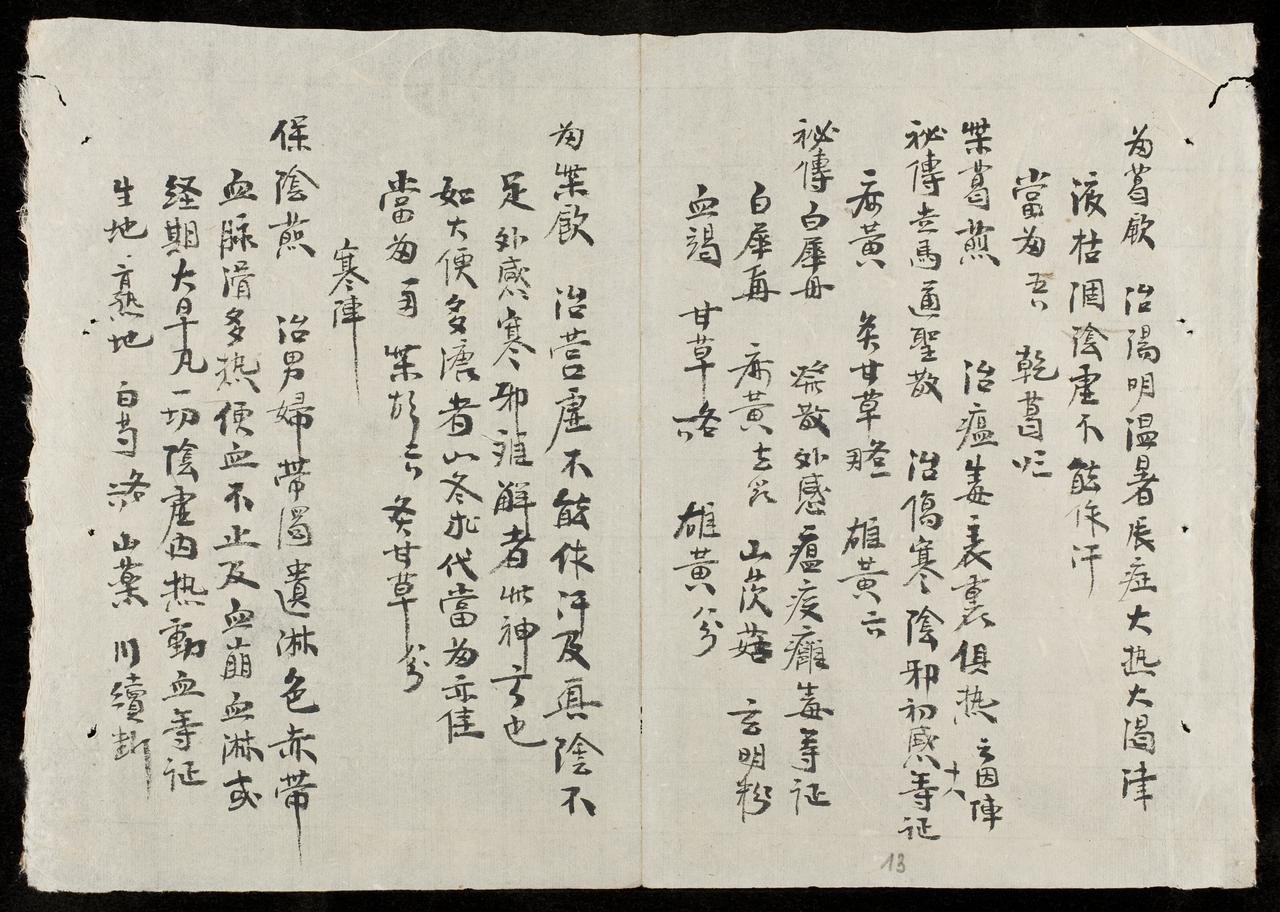 為葛飲 治陽明溫暑 症大热大渴津
液枯涸陰虛不能作汗
當為 乾葛
柴葛煎 治瘟毒表裏俱热 云因陣十八
秘傳走馬通聖散 治傷寒陰邪初感等证
麻黃 炙甘草 雄黃
秘傳白犀丹 發散外感瘟疫癰毒等证
白犀 麻黃去 山茨菇 玄明粉
血竭 甘草 雄黃
為柴飲 治营虛不能作汗及真陰不
足外感寒邪难解者此神方也
如大便多溏者以冬朮代當為亦佳
當為 柴胡 炙甘草
寒陣
保陰煎 治男婦帶濁遺淋色赤帶
血脉滑多热便血不止及血崩血淋或
经期太早凡一切陰虛内热動血等证
生地 熟地 白芍 山藥 川續断
13